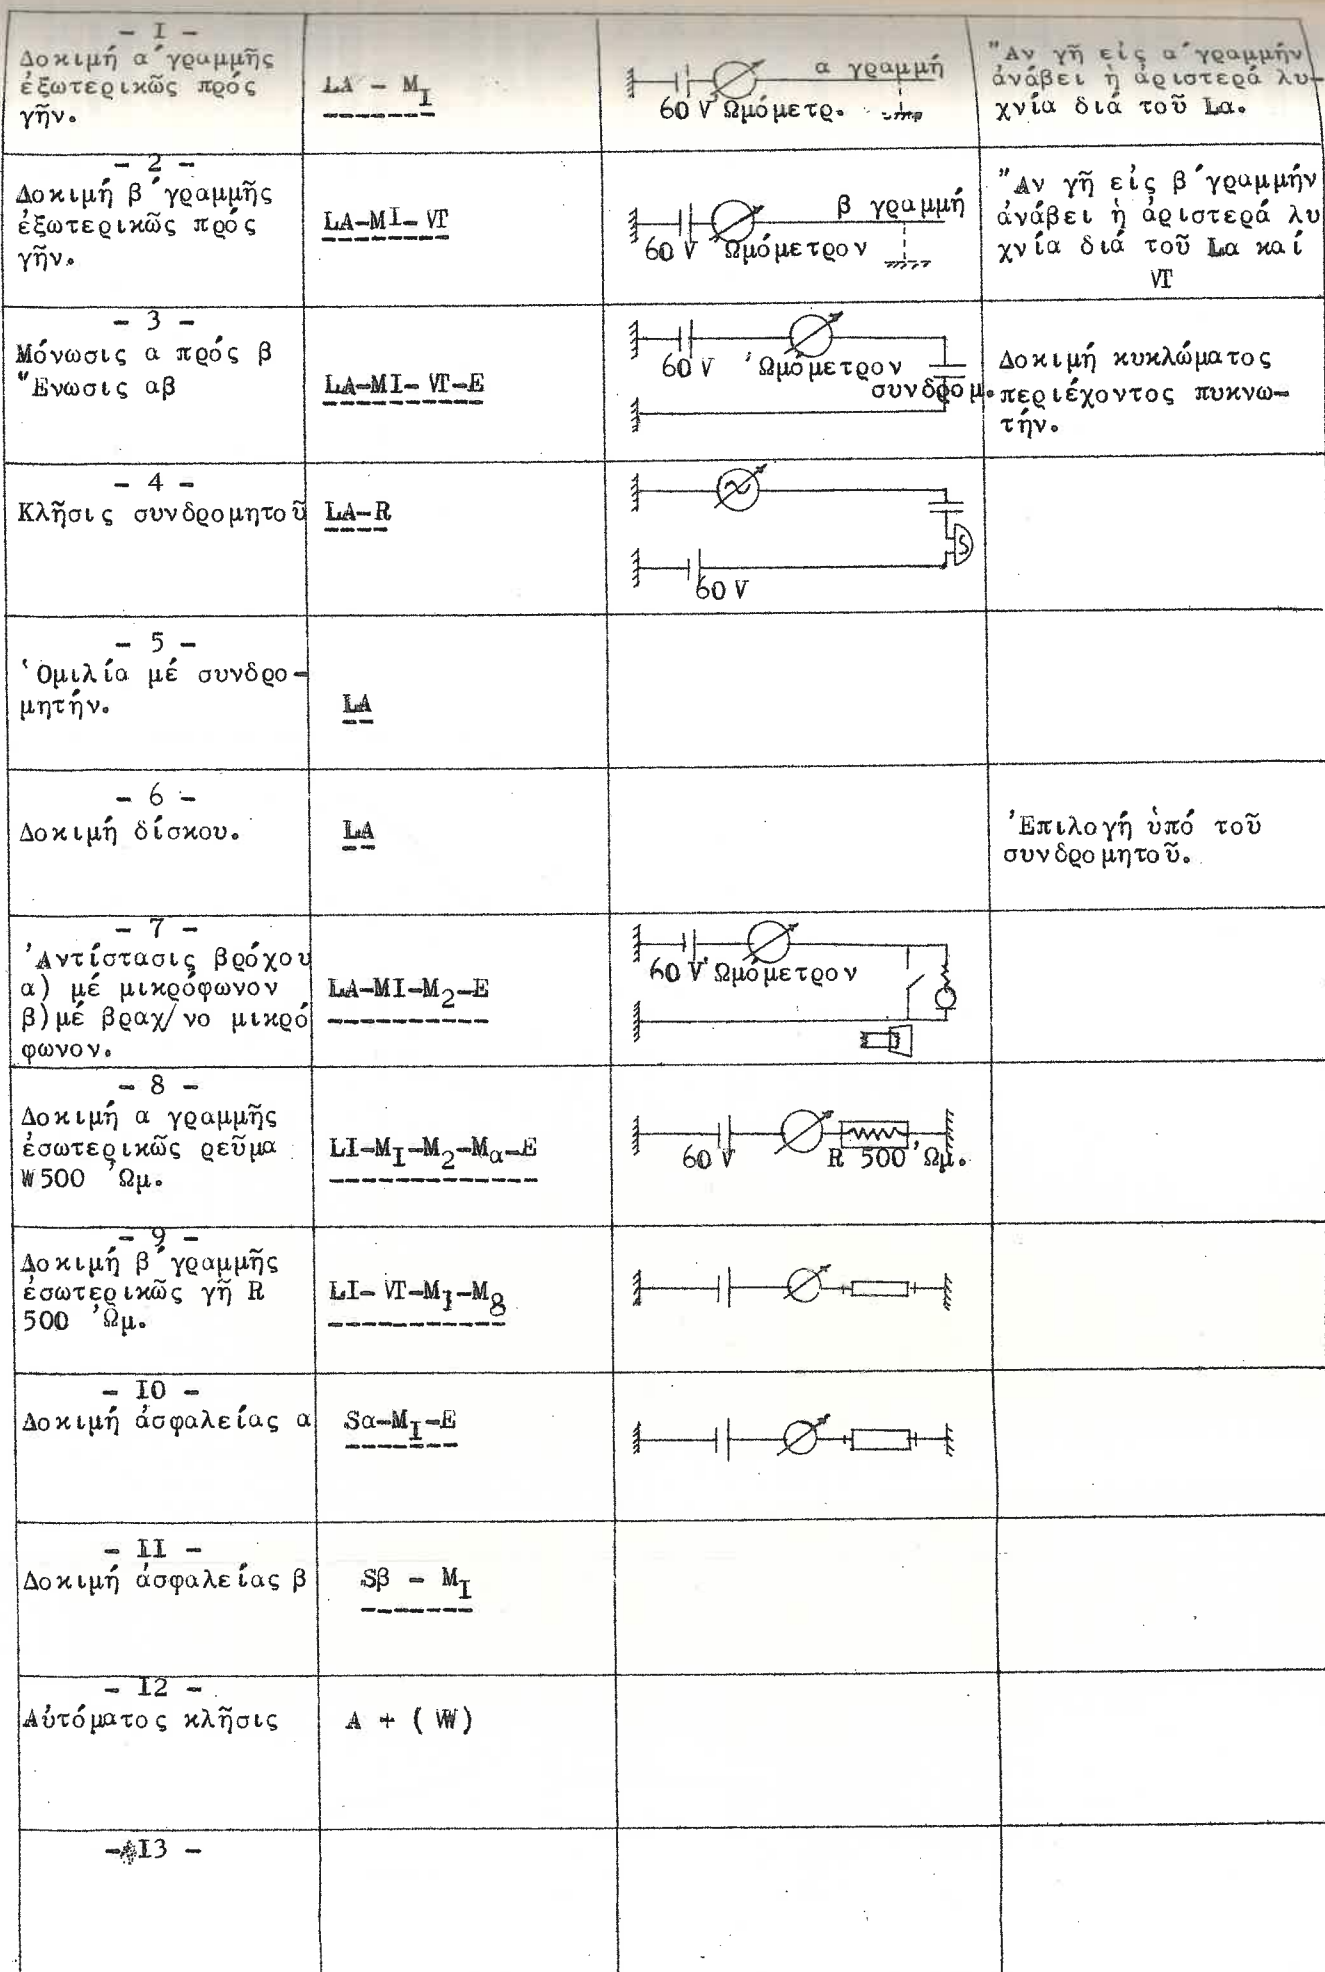 - I -
Δοκιμή α΄γραμμῆς
ἐξωτερικῶς πρός
γῆν.
LA - M_I
α γραμμή
60 V Ὠμόμετρ.
"Αν γῆ εἰς α΄γραμμήν
ἀνάβει ἡ ἀριστερά λυ-
χνία διά τοῦ La.
- 2 -
Δοκιμή β΄γραμμῆς
ἐξωτερικῶς πρός
γῆν.
LA-MI- VT
β γραμμή
60 V Ὠμόμετρον
"Αν γῆ εἰς β΄γραμμήν
ἀνάβει ἡ ἀριστερά λυ
χνία διά τοῦ La καί
VT
- 3 -
Μόνωσις α πρός β
"Ενωσις αβ
LA-MI- VT-E
60 V Ὠμόμετρον
συνδρομ.
Δοκιμή κυκλώματος
περιέχοντος πυκνω-
τήν.
- 4 -
Κλῆσις συνδρομητοῦ
LA-R
60 V
- 5 -
Ὁμιλία μέ συνδρο-
μητήν.
LA
- 6 -
Δοκιμή δίσκου.
LA
Ἐπιλογή ὑπό τοῦ
συνδρομητοῦ.
- 7 -
Ἀντίστασις βρόχου
α) μέ μικρόφωνον
β)μέ βραχ/νο μικρό
φωνον.
LA-MI-M₂-E
60 V Ὠμόμετρον
- 8 -
Δοκιμή α γραμμῆς
ἐσωτερικῶς ρεῦμα
W500 Ὠμ.
LI-M_I-M₂-Mα-E
60 V R 500 Ὠμ.
- 9 -
Δοκιμή β΄γραμμῆς
ἐσωτερικῶς γῆ R
500 Ὠμ.
LI- VT-M₁-M₈
- I0 -
Δοκιμή ἀσφαλείας α
Sα-M_I-E
- II -
Δοκιμή ἀσφαλείας β
Sβ - M_I
- I2 -
Αὐτόματος κλῆσις
A + ( W)
- I3 -